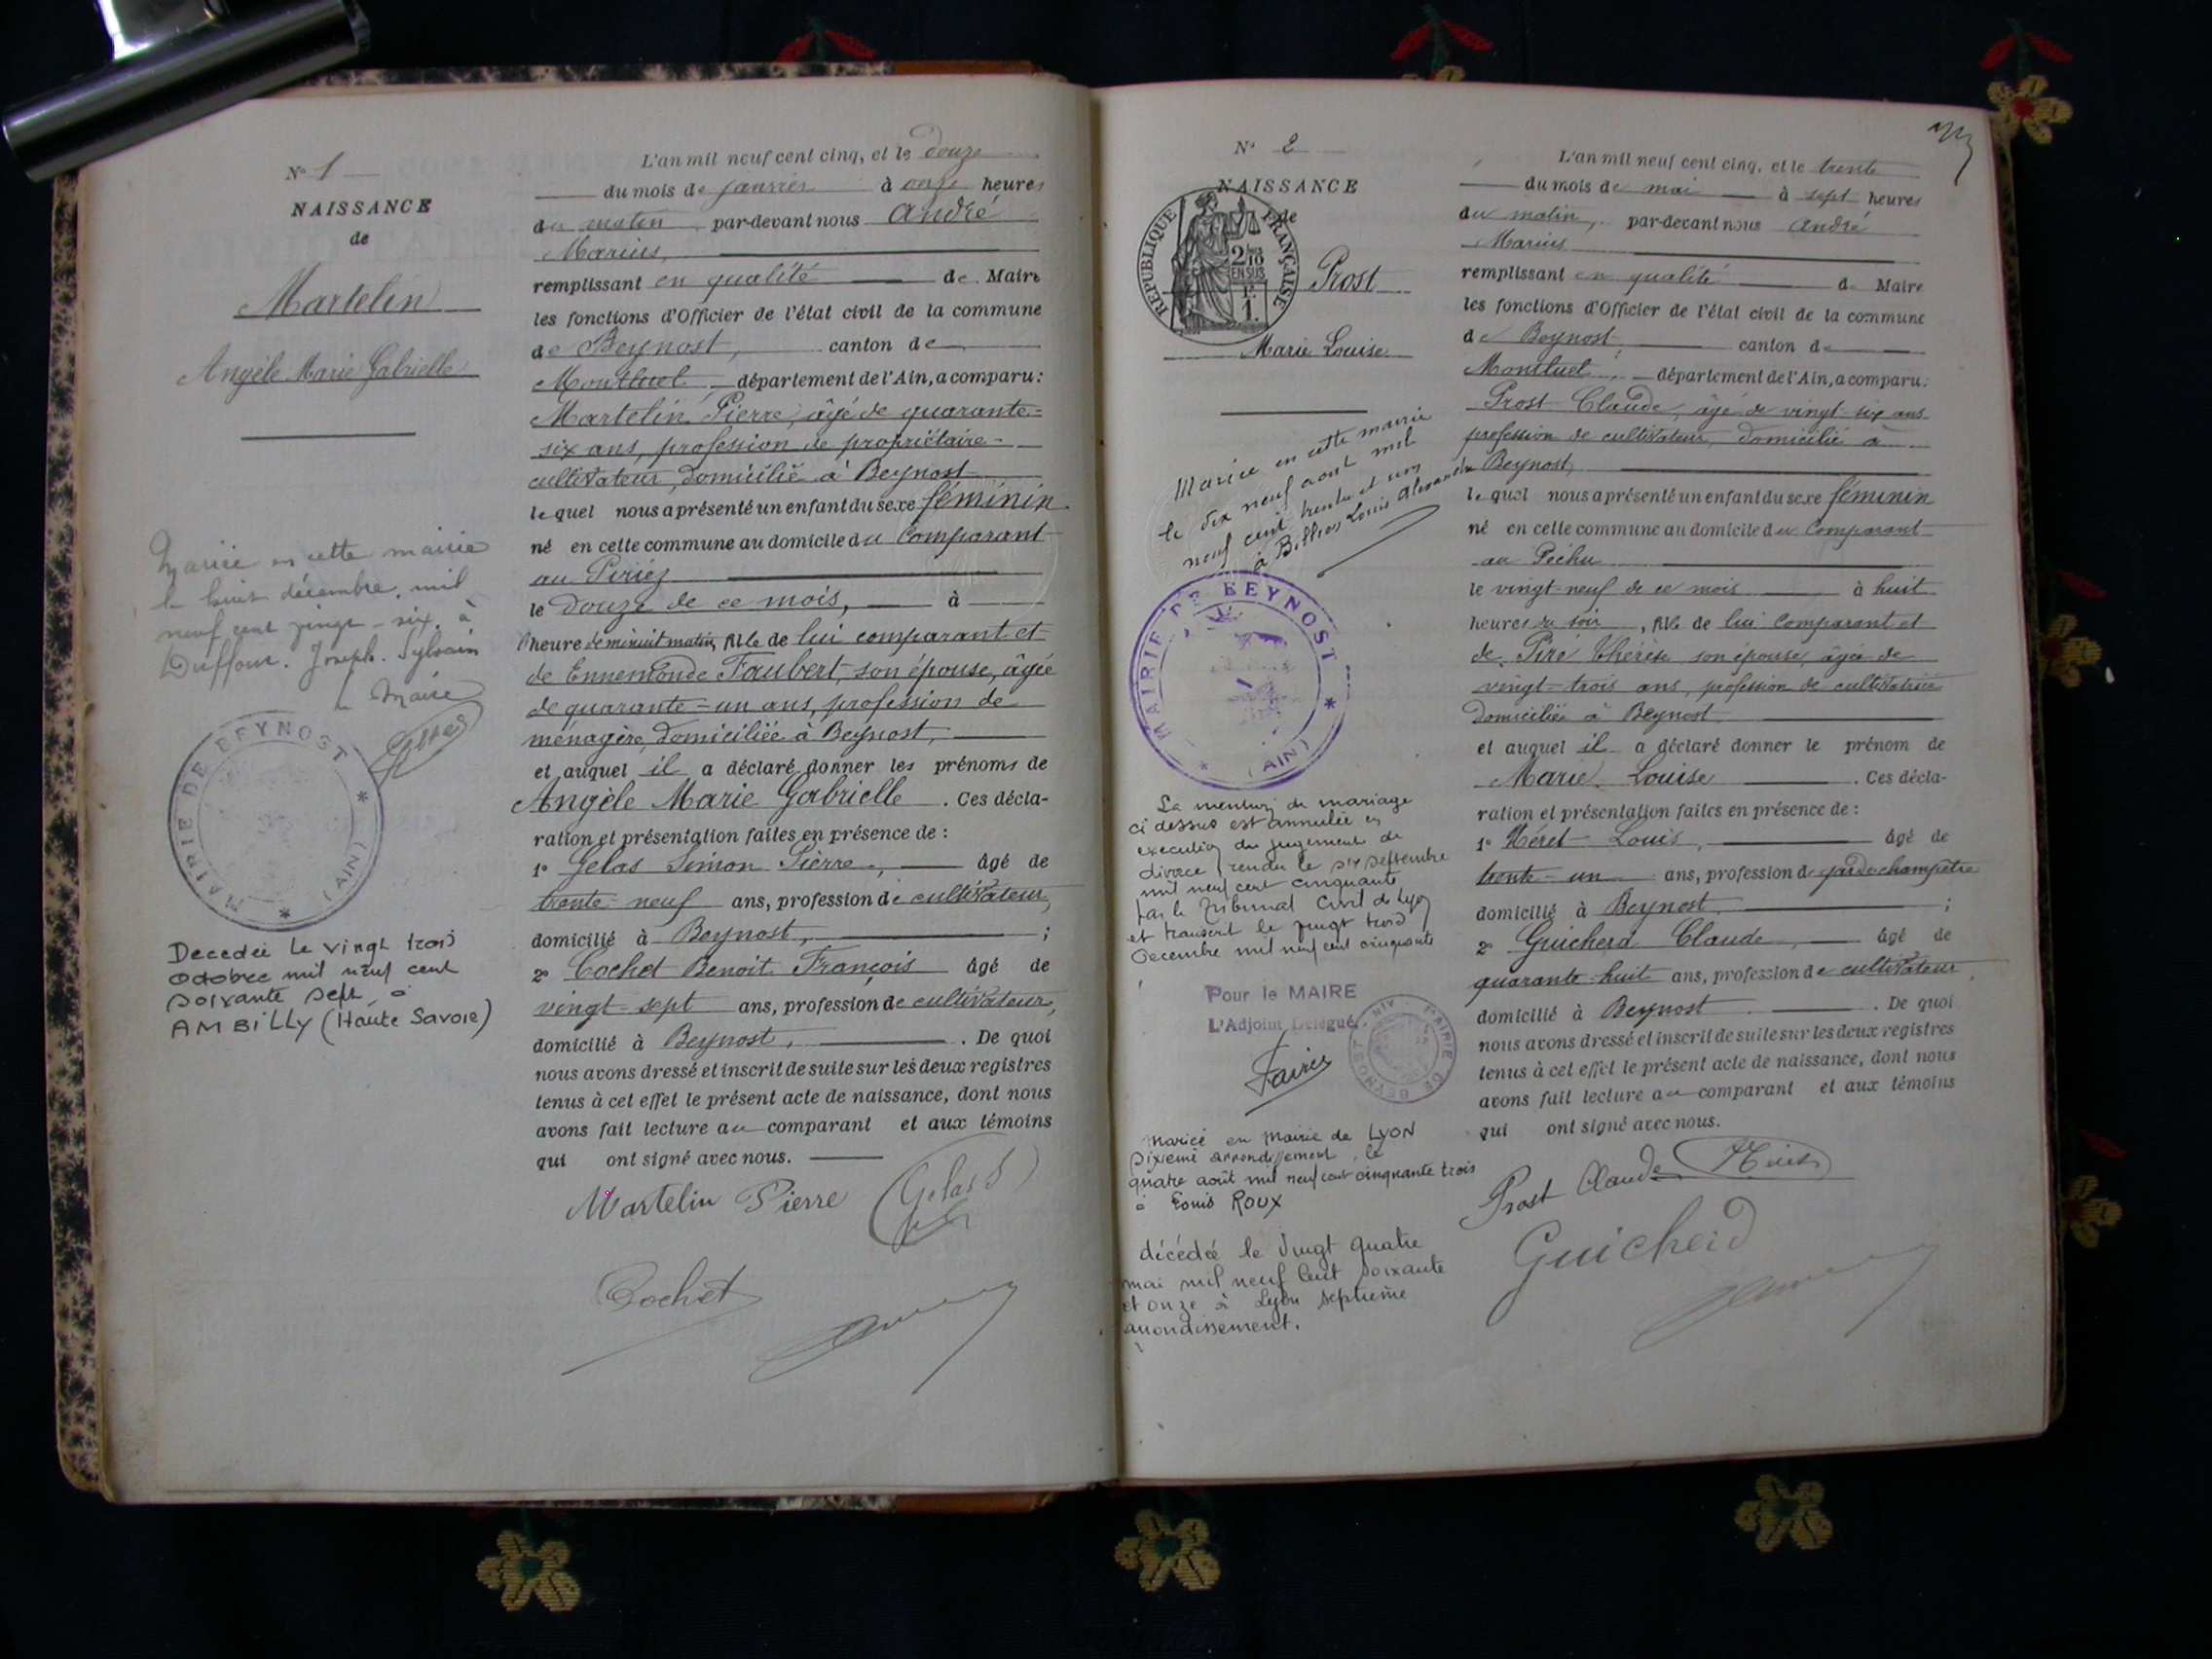 N° 1
NAISSANCE
de
Martelin
Angèle Marie Gabrielle
Mariée en cette mairie
le huit décembre, mil
neuf cent vingt-six, à
Duffour. Joseph. Sylvain
Le Maire
MAIRIE DE BEYNOST
* (AIN) *
Decedée le vingt trois
octobre mil neuf cent
soixante sept à
AMBILLY (Haute Savoie)
L'an mil neuf cent cinq, et le douze
du mois de janvier à onze heures
du matin par-devant nous André
Marius,
remplissant en qualité de Maire
les fonctions d'Officier de l'état civil de la commune
de Beynost, canton de
Montluel département de l'Ain, a comparu:
Martelin Pierre, âgé de quarante-
six ans, profession de propriétaire-
cultivateur, domicilié à Beynost
lequel nous a présenté un enfant du sexe féminin
né en cette commune au domicile du comparant
au Piriez
le douze de ce mois, à
heure de minuit matin, fille de lui comparant et
de Ennemonde Faubert, son épouse, âgée
de quarante-un ans, profession de
ménagère, domiciliée à Beynost,
et auquel il a déclaré donner les prénoms de
Angèle Marie Gabrielle. Ces décla-
ration et présentation faites en présence de:
1° Gelas Simon Pierre, âgé de
trente-neuf ans, profession de cultivateur,
domicilié à Beynost, ;
2° Cochet Benoit François âgé de
vingt-sept ans, profession de cultivateur,
domicilié à Beynost, . De quoi
nous avons dressé et inscrit de suite sur les deux registres
tenus à cet effet le présent acte de naissance, dont nous
avons fait lecture au comparant et aux témoins
qui ont signé avec nous.
Martelin Pierre Gelas S
Cochet
N° 2
NAISSANCE
de
REPUBLIQUE FRANÇAISE
2/10
EN SUS
1.
Prost
Marie Louise
Mariée en cette mairie
le dix neuf août mil
neuf cent trente et un
à Billion Louis Alexandre
MAIRIE DE BEYNOST
* (AIN) *
La mention de mariage
ci dessus est annulée en
execution du jugement de
divorce rendu le six septembre
mil neuf cent cinquante
par le Tribunal Civil de Lyon
et transcrit le vingt trois
Decembre mil neuf cent cinquante
Pour le MAIRE
L'Adjoint Délégué
MAIRIE DE BEYNOST AIN
Mariée en Mairie de LYON
sixième arrondissement le
quatre août mil neuf cent cinquante trois
à Louis ROUX
décédée le vingt quatre
mai mil neuf cent soixante
et onze à Lyon septième
arrondissement.
L'an mil neuf cent cinq, et le trente
du mois de mai à sept heures
du matin, par-devant nous André
Marius
remplissant en qualité de Maire
les fonctions d'Officier de l'état civil de la commune
de Beynost, canton de
Montluel, département de l'Ain, a comparu:
Prost Claude, âgé de vingt-six ans
profession de cultivateur, domicilié à
Beynost,
lequel nous a présenté un enfant du sexe féminin
né en cette commune au domicile du comparant
au Pechu
le vingt-neuf de ce mois à huit
heures du soir, fille de lui comparant et
de Piré Thérèse son épouse, âgée de
vingt-trois ans, profession de cultivatrice
domiciliée à Beynost
et auquel il a déclaré donner le prénom de
Marie Louise . Ces décla-
ration et présentation faites en présence de:
1° Héret Louis, âgé de
trente-un ans, profession de garde champêtre
domicilié à Beynost ;
2° Guicherd Claude, âgé de
quarante-huit ans, profession de cultivateur,
domicilié à Beynost . De quoi
nous avons dressé et inscrit de suite sur les deux registres
tenus à cet effet le présent acte de naissance, dont nous
avons fait lecture au comparant et aux témoins
qui ont signé avec nous.
Prost Claude
Guicherd